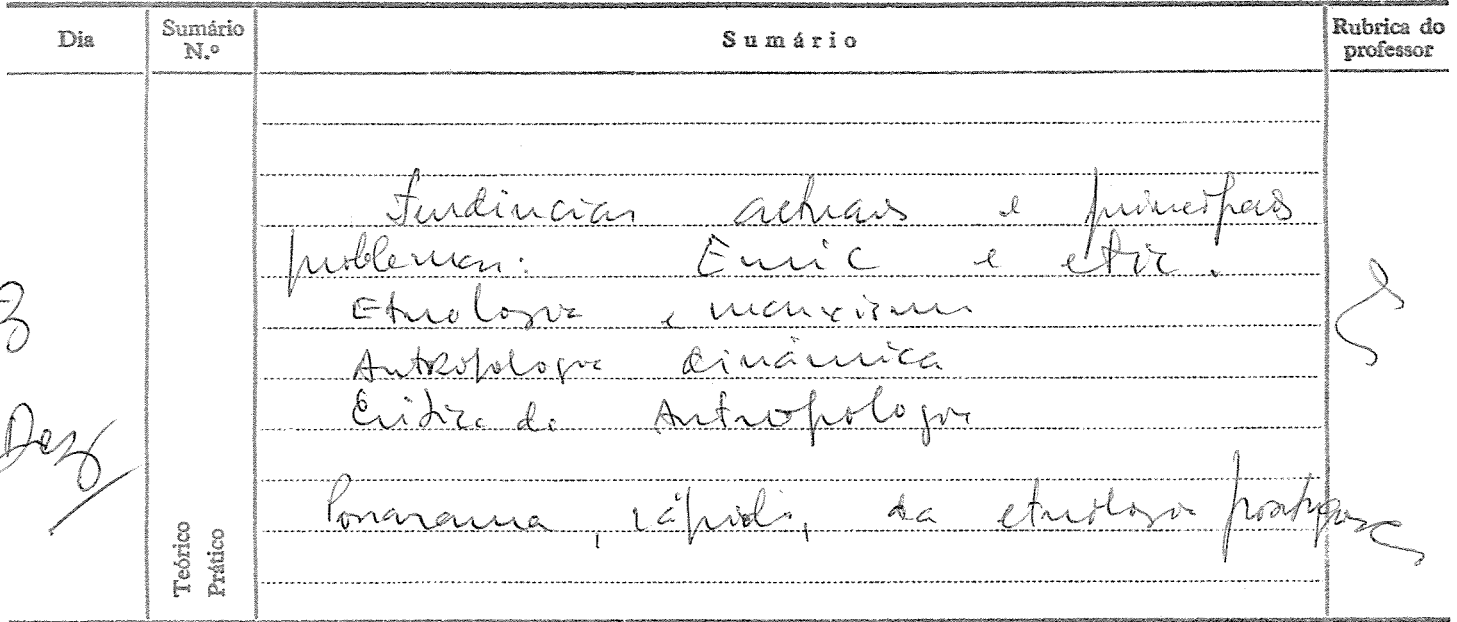 Dia
Sumário N.º
Sumário
Rubrica do professor
3
Dez
Tendências actuais e principais
problemas: Emic e etic.
Etnologia e marxismo
Antropologia dinâmica
Crítica da Antropologia
Panorama, rápido, da etnologia portuguesa
Teórico
Prático